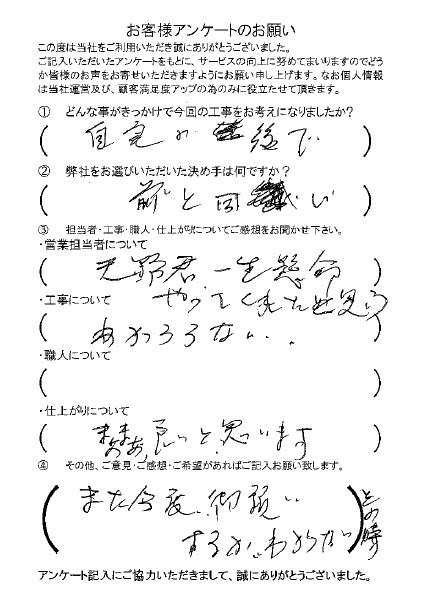 お客様アンケートのお願い
この度は当社をご利用いただき誠にありがとうございました。
ご記入いただいたアンケートをもとに、サービスの向上に努めてまいりますのでどう
か皆様のお声をお寄せいただきますようにお願い申し上げます。なお個人情報
は当社運営及び、顧客満足度アップの為のみに役立たせて頂きます。
① どんな事がきっかけで今回の工事をお考えになりましたか?
② 弊社をお選びいただいた決め手は何ですか?
前と同 い
③ 担当者・工事・職人・仕上がりについてご感想をお聞かせ下さい。
・営業担当者について
君 一生懸命
やってくれたと思う
・工事について
わからない.
・職人について
・仕上がりについて
まあまあ良いと思います
④ その他、ご意見・ご感想・ご希望があればご記入お願い致します。
また今度、御願い
するか、わからない
その時
アンケート記入にご協力いただきまして、誠にありがとうございました。